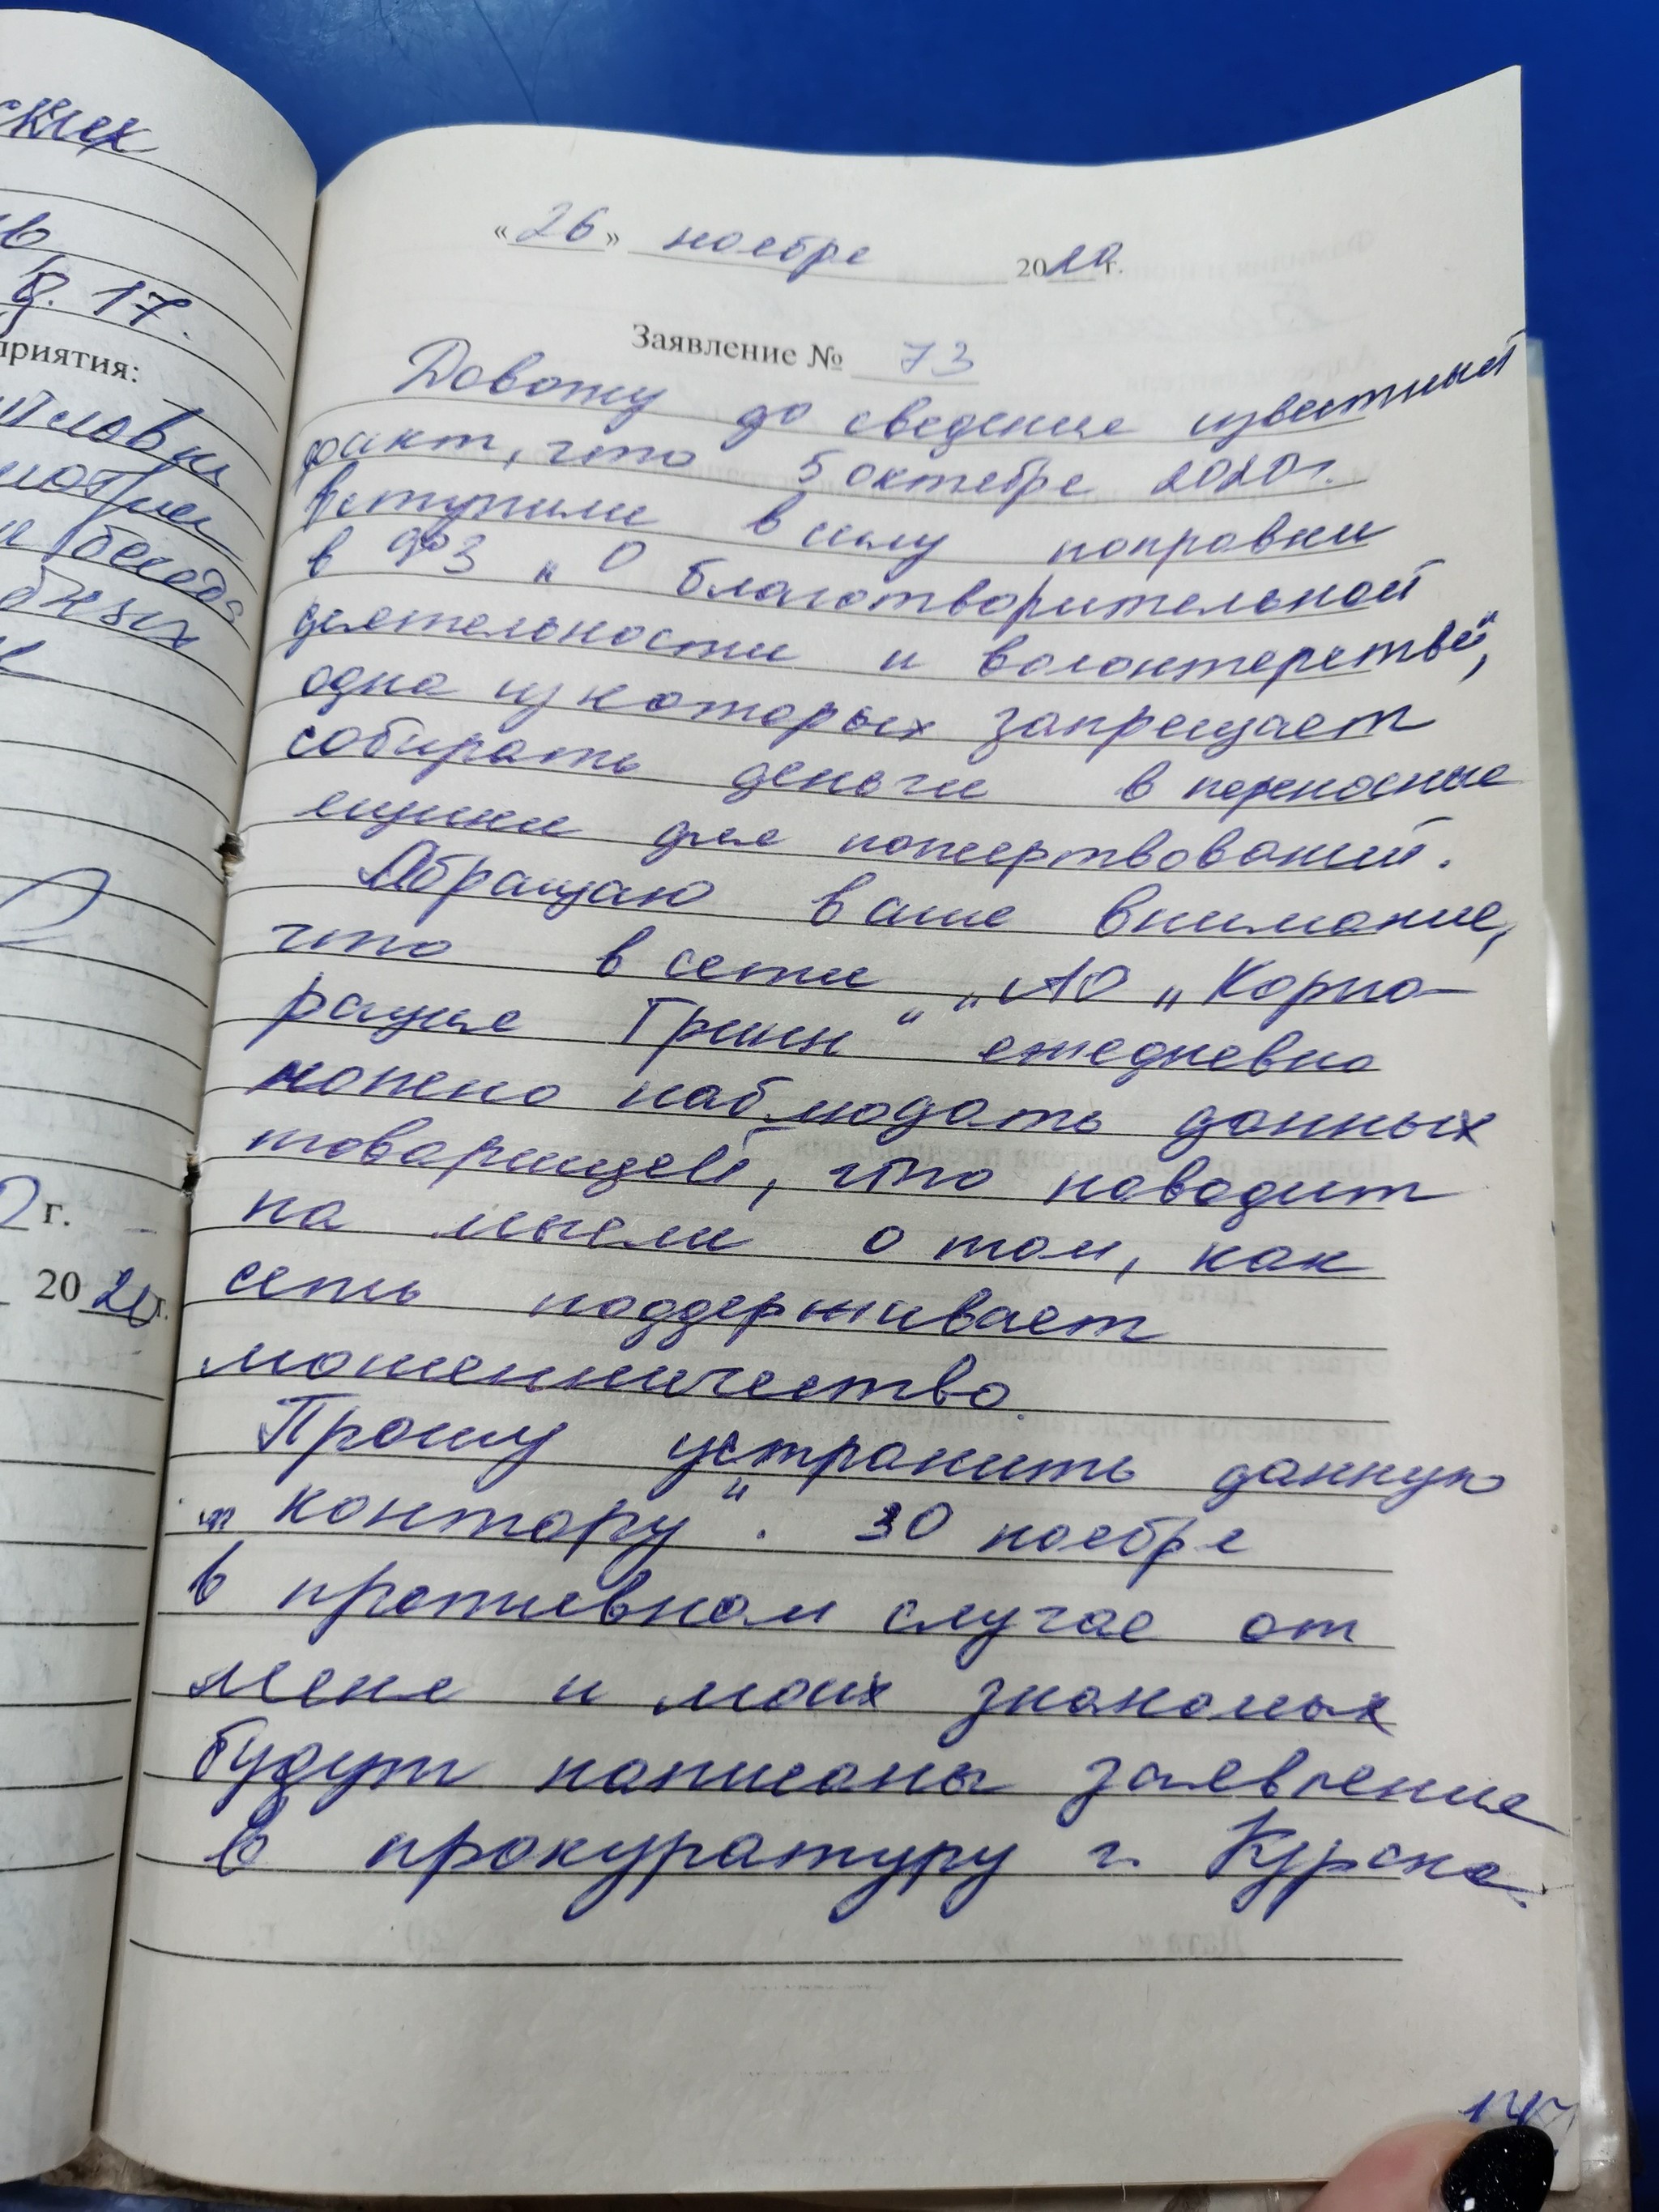 ских
в
д. 17.
приятия:
г.
20 20 г.
« 26 » ноября 2020 г.
Заявление № 73
Довожу до сведения известный
факт, что 5 октября 2020г.
вступили в силу поправки
в ФЗ „О благотворительной
деятельности и волонтерстве“,
одна из которых запрещает
собирать деньги в переносные
ящики для пожертвований.
Обращаю ваше внимание,
что в сети „АО „Корпо-
рация Гринн“ ежедневно
можно наблюдать данных
товарищей, что наводит
на мысли о том, как
сеть поддерживает
мошенничество.
Прошу устранить данную
„контору“. 30 ноября
в противном случае от
меня и моих знакомых
будут написаны заявления
в прокуратуру г. Курска.
147